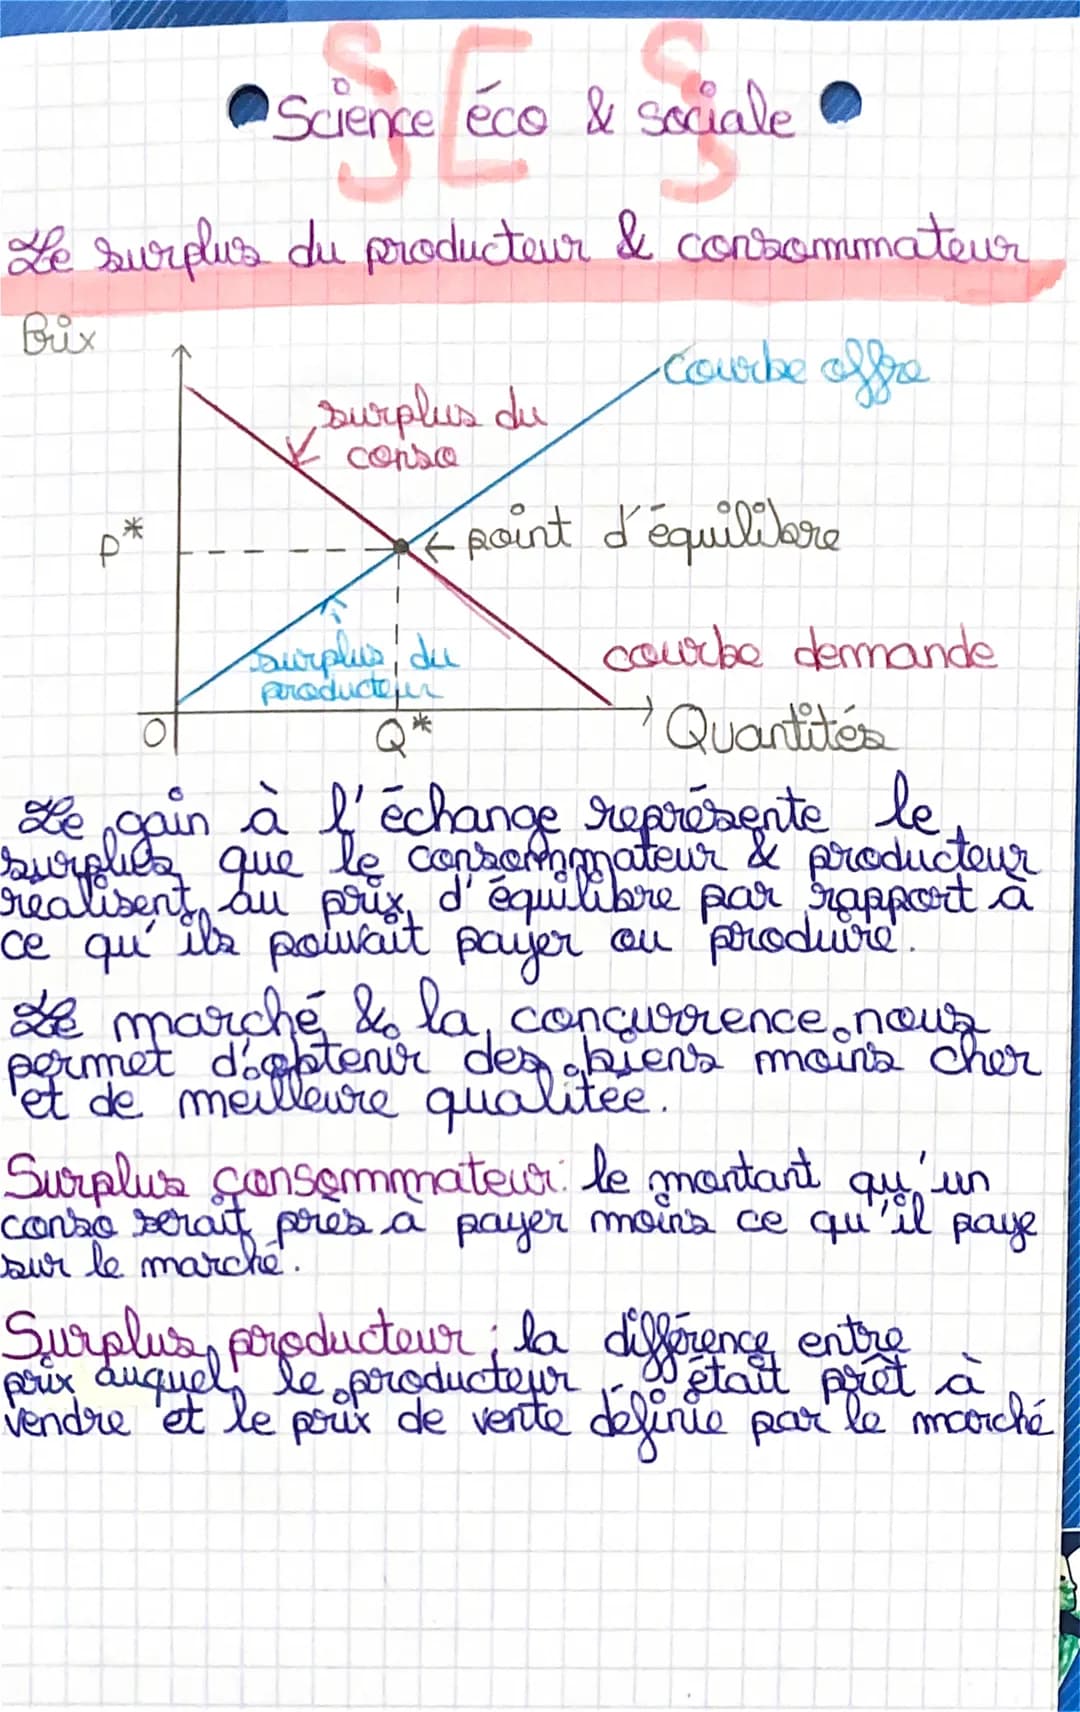 SES
Science éco & sociale
Le surplus du producteur & consommateur
Prix
courbe offre
surplus du
conso
P*
point d'équilibre
surplus du
producteur
courbe demande
O
Q*
Quantités
Le gain à l'échange représente le
surplus que le consommateur & producteur
réalisent au prix d'équilibre par rapport à
ce qu'ils pouvait payer ou produire.
Le marché & la concurrence nous
permet d'obtenir des biens moins cher
et de meilleure qualitée.
Surplus consommateur: le montant qu'un
conso serait près à payer moins ce qu'il paye
sur le marché.
Surplus producteur : la différence entre
prix auquel le producteur était prêt à
vendre et le prix de vente définie par le marché